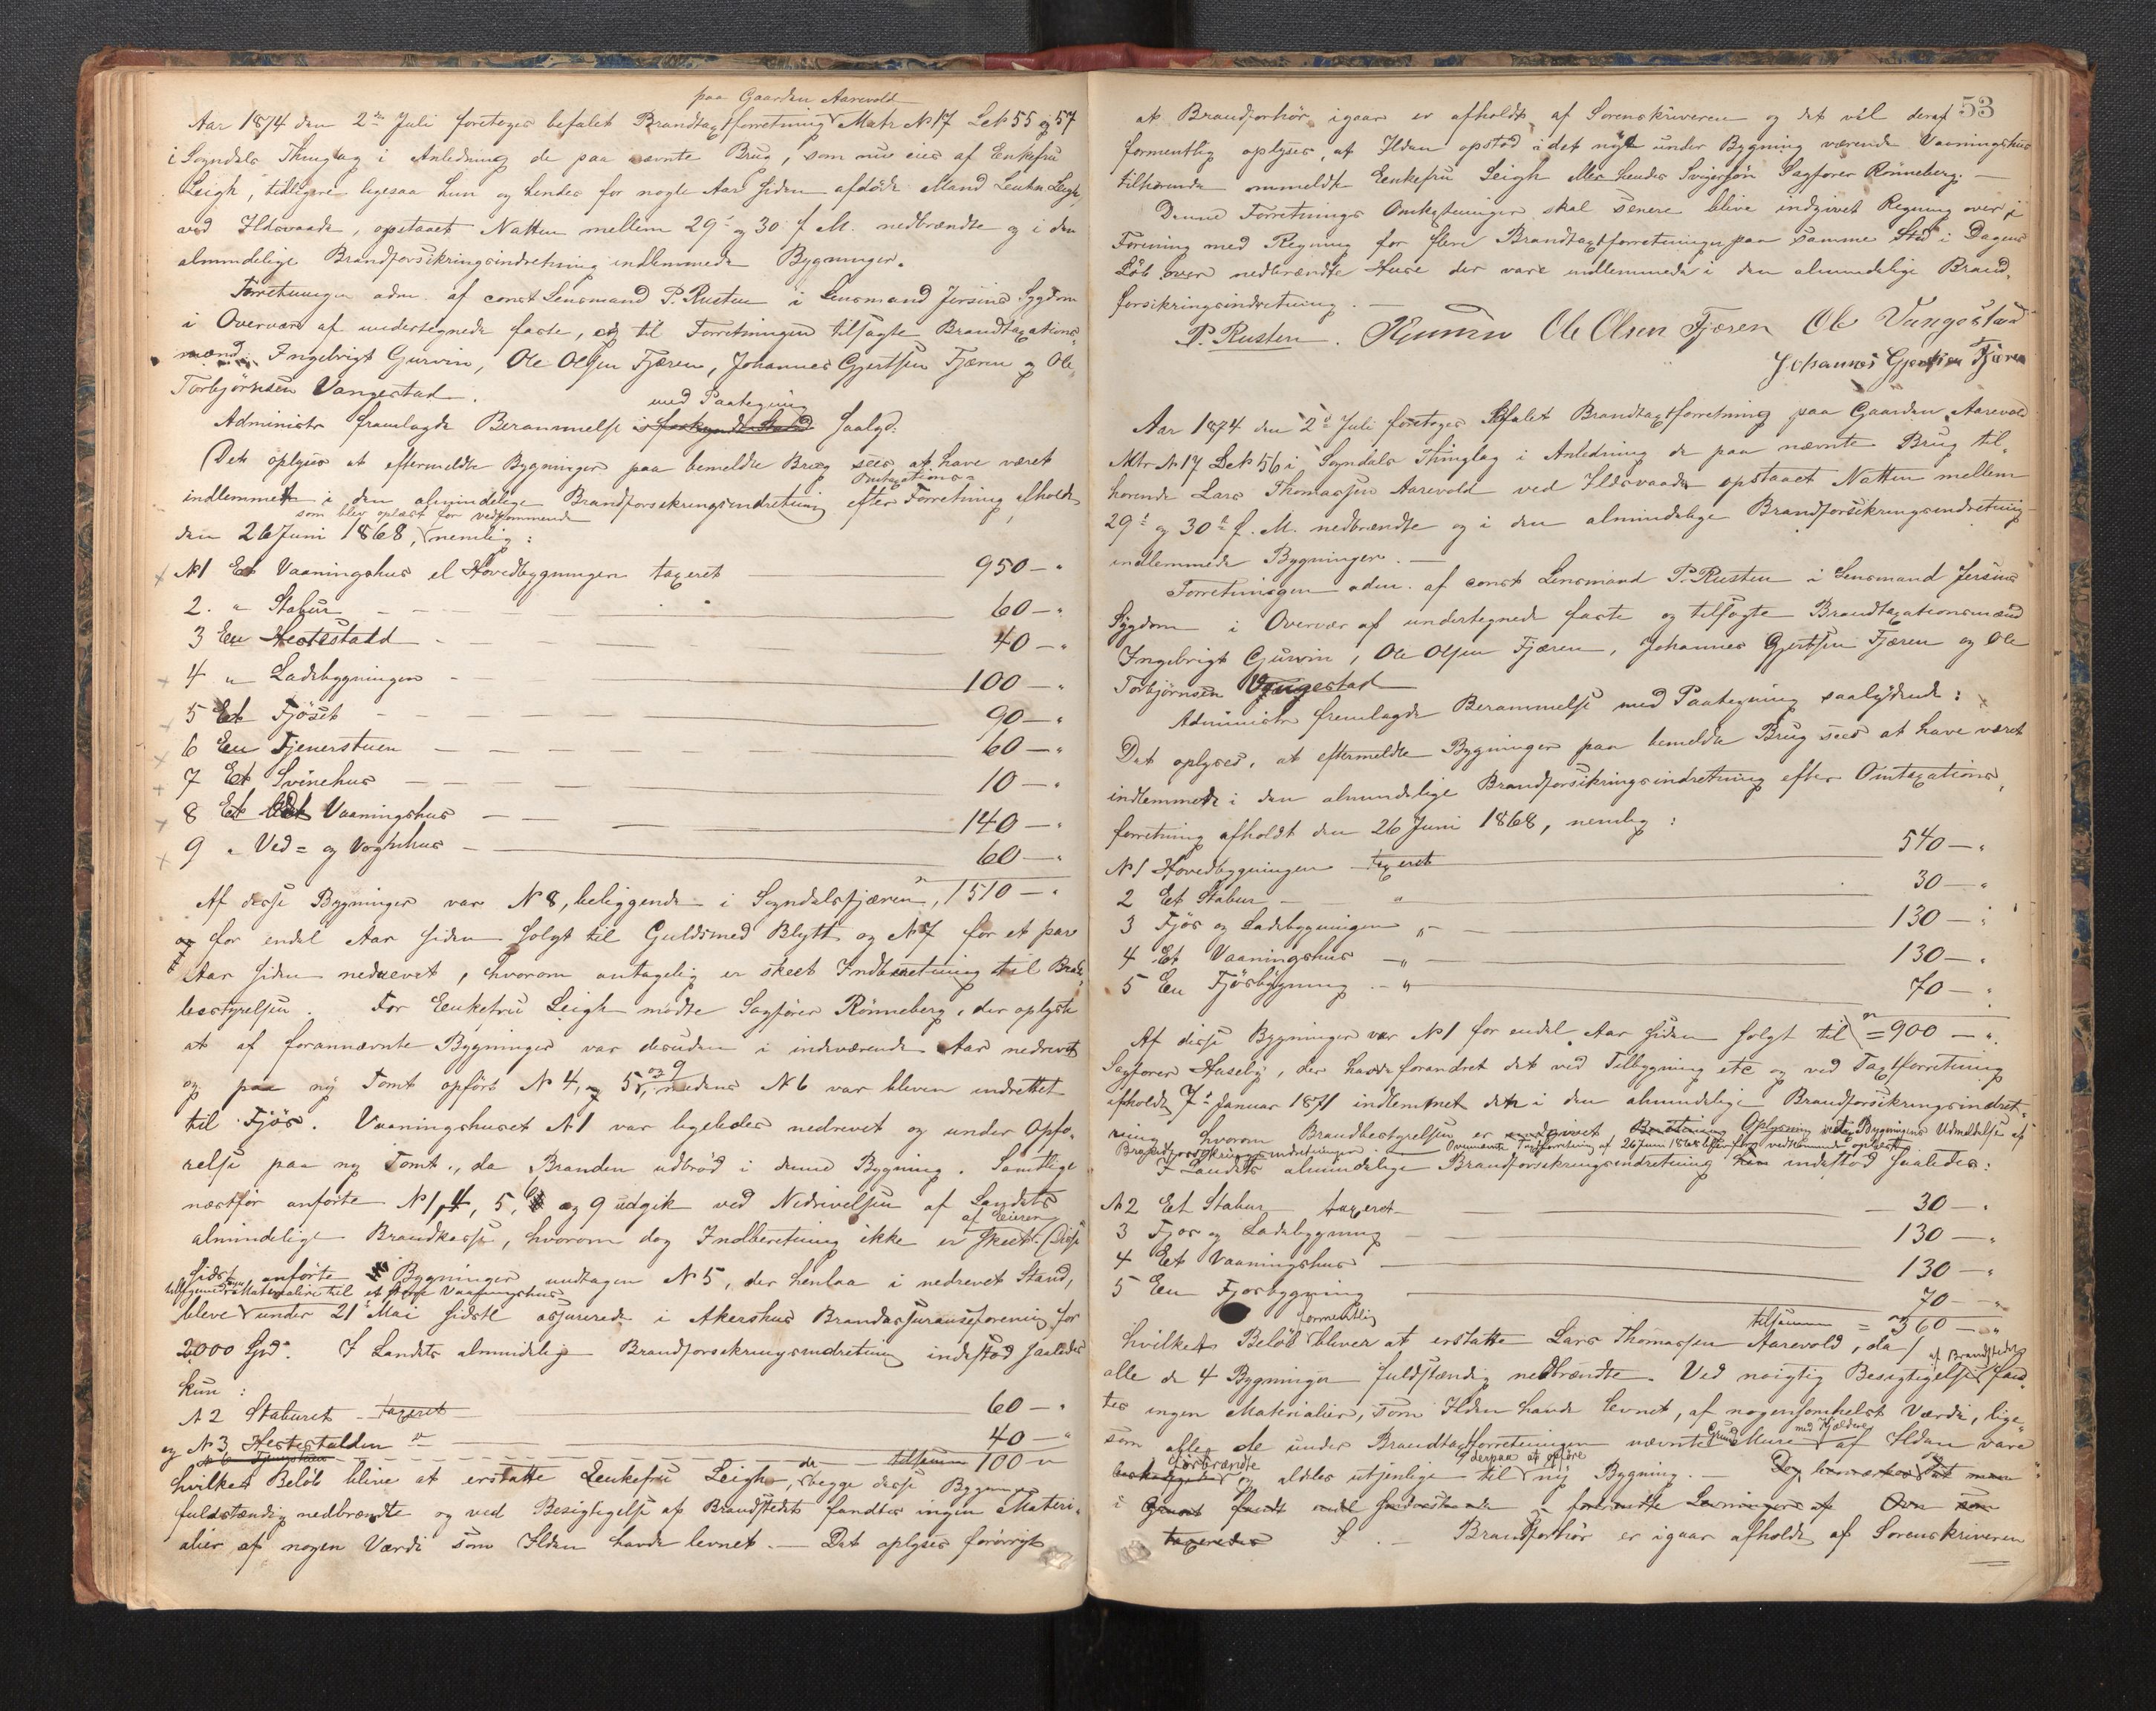 paa Gaarden Aarevold
Aar 1874 den 2den Juli foretoges befalet Brandtaxtforretning Matr No 17 Lb No 55 og 57
i Sogndals Thinglag i Anledning de paa nævnte Brug, som nu eies af Enkefru
Leigh, tidligere ligesaa hun og hendes for nogle Aar siden afdøde Mand Leutn. Leigh,
ved Ildsvaade, opstaaet Natten mellem 29de og 30 f. M. nedbrændte og i den
almindelige Brandforsikringsindretning indlemmede Bygninger.
Forretningen adm. af const Lensmand P. Rusten i Lensmand Jersins Sygdom
i Overvær af undertegnede faste, og til Forretningen tilsagte Brandtaxations-
mænd Ingebrigt Gurvin, Ole Olsen Fjæren, Johannes Gjertsen Fjæren og Ole
Torbjørnsen Vangestad.
med Paategning
Administr fremlagde Berammelse saalyd:
Det oplyses at eftermeldte Bygninger paa bemeldte Brug sees at have været
Omtaxations-
indlemmet i den almindelige Brandforsikringsindretning efter Forretning afholdt
som blev oplæst for vedkommende
den 26 Juni 1868, nemlig:
No 1 Et Vaaningshus el Hovedbygningen taxeret 950 - "
2. " Stabur 60 - "
3 En Hestestald 40 - "
4 " Ladebygningen 100 - "
5 Et Fjøset 90 - "
6 En Tjenerstuen 60 - "
7 Et Svinehus 10 - "
8 Et Vaaningshus 140 - "
9 " Ved= og Vognhus 60 - "
Af disse Bygninger var No 8, beliggende i Sogndalsfjæren, 1510 - "
for endel Aar siden solgt til Guldsmed Blytt og No 7 for et par
Aar siden nedrevet, hvorom antagelig er skeet Indberetning til Brand-
bestyrelsen. For Enkefru Leigh mødte Sagfører Rønneberg, der oplyste
at af forannævnte Bygninger var desuden i indeværende Aar nedrevet
og paa ny Tomt opført No 4, 5 og 9, medens No 6 var bleven indrettet
til Fjøs. Vaaningshuset No 1 var ligeledes nedrevet og under Opfø-
relse paa ny Tomt, da Branden udbrød i denne Bygning. Samtlige
næstfør anførte No 1, 4, 5, og 9 udgik ved Nedrivelsen af Landets
af Eieren
almindelige Brandkasse, hvorom dog Indberetning ikke er skeet. (Disse
sidst anførte Bygninger undtagen No 5, der henlaa i nedrevet Stand,
tilligemed Materialier til et større Vaaningshus
bleve under 21de Mai sidstl assurerede i Akershus Brandassuranseforening for
2000 Spd. I Landets almindelig Brandforsikringsindretning indestod saaledes
kun:
No 2 Staburet taxeret 60 - "
og No 3 Hestestalden " 40 - "
tilsammen 100 - "
hvilket Beløb blive at erstatte Enkefru Leigh, da begge disse Bygninger
fuldstændig nedbrændte og ved Besigtigelse af Brandstedet fandtes ingen Materi-
alier af nogen Værdi som Ilden havde levnet. — Det oplyses forøvrigt
53
at Brandforhør igaar er afholdt af Sorenskriveren og det vil deraf
formentlig oplyses, at Ilden opstod i det nye under Bygning værende Vaaningshus
tilhørende ommeldte Enkefru Leigh eller hendes Svigersøn Sagfører Rønneberg. —
Denne Forretnings Omkostninger skal senere blive indgivet Regning over i
Forening med Regning for flere Brandtaxtforretninger paa samme Sted i Dagens
Løb over nedbrændte Huse der vare indlemmede i den almindelige Brand-
forsikringsindretning. —
P. Rusten. IGurvin Ole Olsen Fjæren Ole Vangestad
Johannes Gjertsen Fjæren
Aar 1874 den 2de Juli foretoges befalet Brandtaxtforretning paa Gaarden Aarevold
Mtr No 17 Lb No 56 i Sogndals Thinglag i Anledning de paa nævnte Brug til-
hørende Lars Thomassen Aarevold ved Ildsvaade opstaaet Natten mellem
29de og 30te f. M. nedbrændte og i den almindelige Brandforsikringsindretning
indlemmede Bygninger. —
Forretningen adm. af const Lensmand P. Rusten i Lensmand Jersins
Sygdom i Overvær af undertegnede faste og tilsagte Brandtaxationsmænd
Ingebrigt Gurvin, Ole Olsen Fjæren, Johannes Gjertsen Fjæren og Ole
Torbjørnsen Vangestad
Administr fremlagde Berammelse med Paategning saalydende:
Det oplyses, at eftermeldte Bygninger paa bemeldte Brug sees at have været
indlemmede i den almindelige Brandforsikringsindretning efter Omtaxations-
forretning afholdt den 26 Juni 1868, nemlig:
No 1 Hovedbygningen taxeret 540 - "
2 Et Stabur " 30 - "
3 Fjøs og Ladebygningen " 130 - "
4 Et Vaaningshus " 130 - "
5 En Fjøsbygning " 70 - "
Af disse Bygninger var No 1 for endel Aar siden solgt til = 900 - "
Sagfører Huseby, der havde forandret det ved Tilbygning etc og ved Taxtforretning
afholdt 7de Januar 1871 indlemmet den i den almindelige Brandforsikringsindret-
ning hvorom Brandbestyrelsen er Oplysning Bygningens Udmeldelse af
Brandforsikringsindretningen. — Ovennævnte Taxtforretning af 26 Juni 1868 blev for vedkommende oplæst
I Landets almindelige Brandforsikringsindretning indestod saaledes:
No 2 Et Stabur taxeret 30 - "
3 Fjøs og Ladebygning 130 - "
4 Et Vaaningshus 130 - "
5 En Fjøsbygning 70 - "
tilsammen = 360 - "
formentlig
hvilket Beløb bliver at erstatte Lars Thomassen Aarevold, da
af Brandstedet
alle de 4 Bygninger fuldstændig nedbrændte. Ved nøigtig Besigtigelse fand-
tes ingen Materialier, som Ilden havde levnet, af nogensomhelst Værdi, lige-
Grund med Kjældere
som alle de under Brandtaxtforretningen nævnte Mure af Ilden vare
forbrændte derpaa at opføre
og aldeles utjenlige til ny Bygning. —
Brandforhør er igaar afholdt af Sorenskriveren